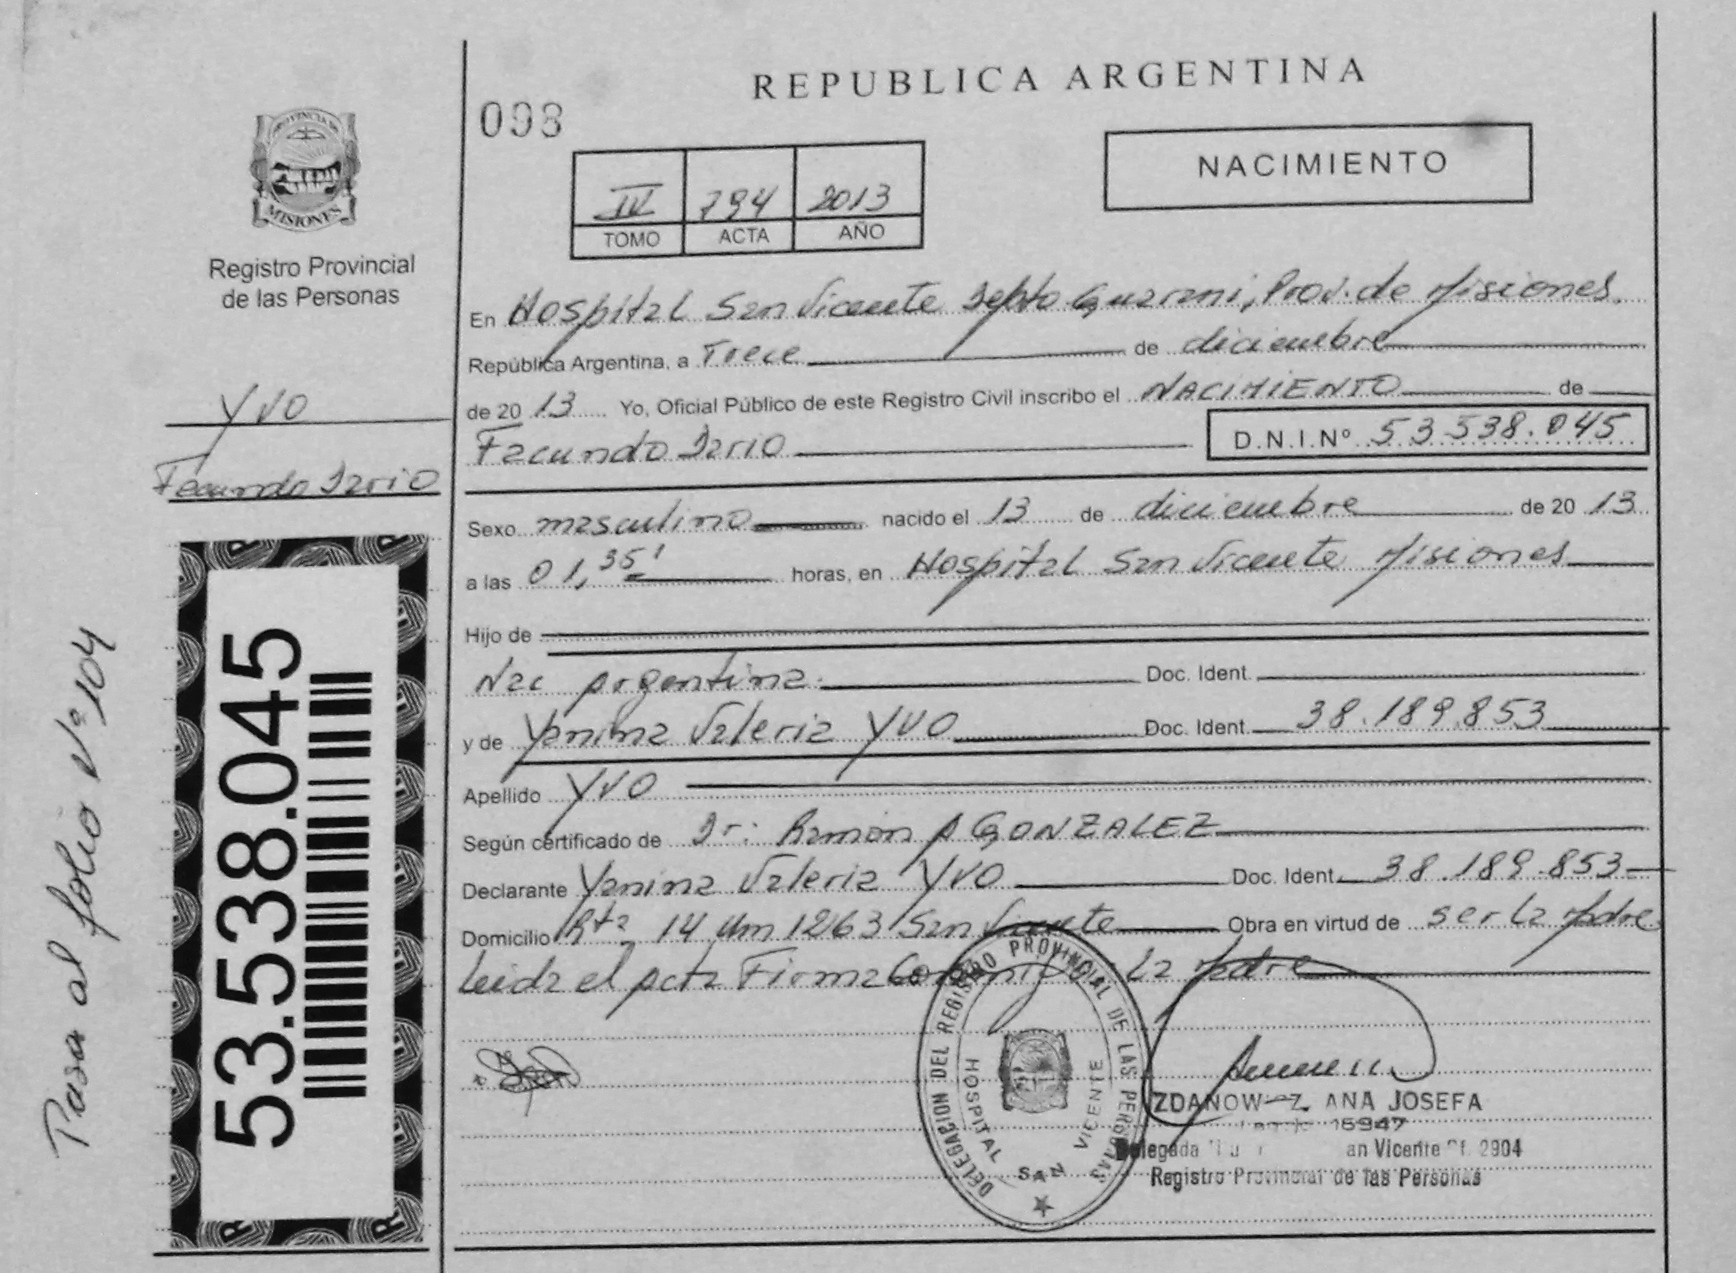 REPUBLICA ARGENTINA
098
NACIMIENTO
IV 794 2013
TOMO ACTA AÑO
PROVINCIA DE
MISIONES
Registro Provincial
de las Personas
YVO
Facundo Dario
53.538.045
Pasa al folio Nº 104
En Hospital San Vicente Depto Guarani, Prov. de Misiones.
República Argentina, a Trece de diciembre
de 20 13 Yo, Oficial Público de este Registro Civil inscribo el NACIMIENTO de
Facundo Dario D.N.I.Nº 53.538.045
Sexo masculino nacido el 13 de diciembre de 20 13
a las 01,35' horas, en Hospital San Vicente Misiones
Hijo de
Nac Argentina. Doc. Ident.
y de Yanina Valeria YVO Doc. Ident. 38.189.853
Apellido YVO
Según certificado de Dr: Ramon A GONZALEZ
Declarante Yanina Valeria YVO Doc. Ident. 38.189.853
Domicilio Rta 14 Km 1263 San Vicente Obra en virtud de ser La Madre
Leida el acta Firma Conmigo La Madre
DELEGACION DEL REGISTRO PROVINCIAL DE LAS PERSONAS
HOSPITAL SAN VICENTE
ANA JOSEFA
15947
Delegada an Vicente Of. 2904
Registro Provincial de las Personas